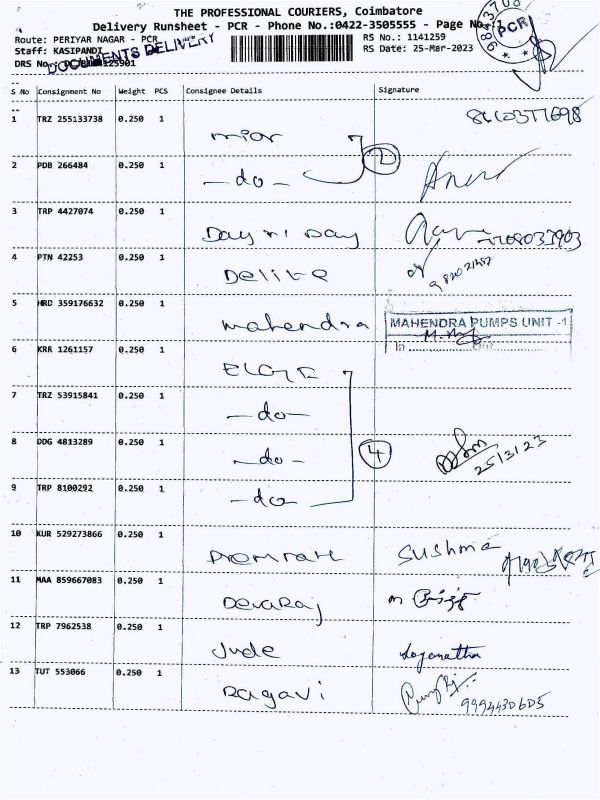 THE PROFESSIONAL COURIERS, Coimbatore
Delivery Runsheet - PCR - Phone No.:0422-3505555 - Page No.:1
Route: PERIYAR NAGAR - PCR
RS No.: 1141259
Staff: KASIPANDI
RS Date: 25-Mar-2023
DOCUMENTS DELIVERY
DRS No.:
PCR
S No Consignment No Weight PCS Consignee Details Signature
1 TRZ 255133738 0.250 1
2 PDB 266484 0.250 1 -do-
2
3 TRP 4427074 0.250 1 Day
4 PTN 42253 0.250 1 Delite
5 HRD 359176632 0.250 1 mahendra MAHENDRA PUMPS UNIT -1
In
6 KRR 1261157 0.250 1
7 TRZ 53915841 0.250 1 -do-
8 DDG 4813289 0.250 1 -do- 25/3/23
4
9 TRP 8100292 0.250 1 -do-
10 KUR 529273866 0.250 1 Sushma
11 MAA 859667083 0.250 1 Devaraj
12 TRP 7962538 0.250 1 Jude Loganatha
13 TUT 553066 0.250 1 Ragavi 9994430605